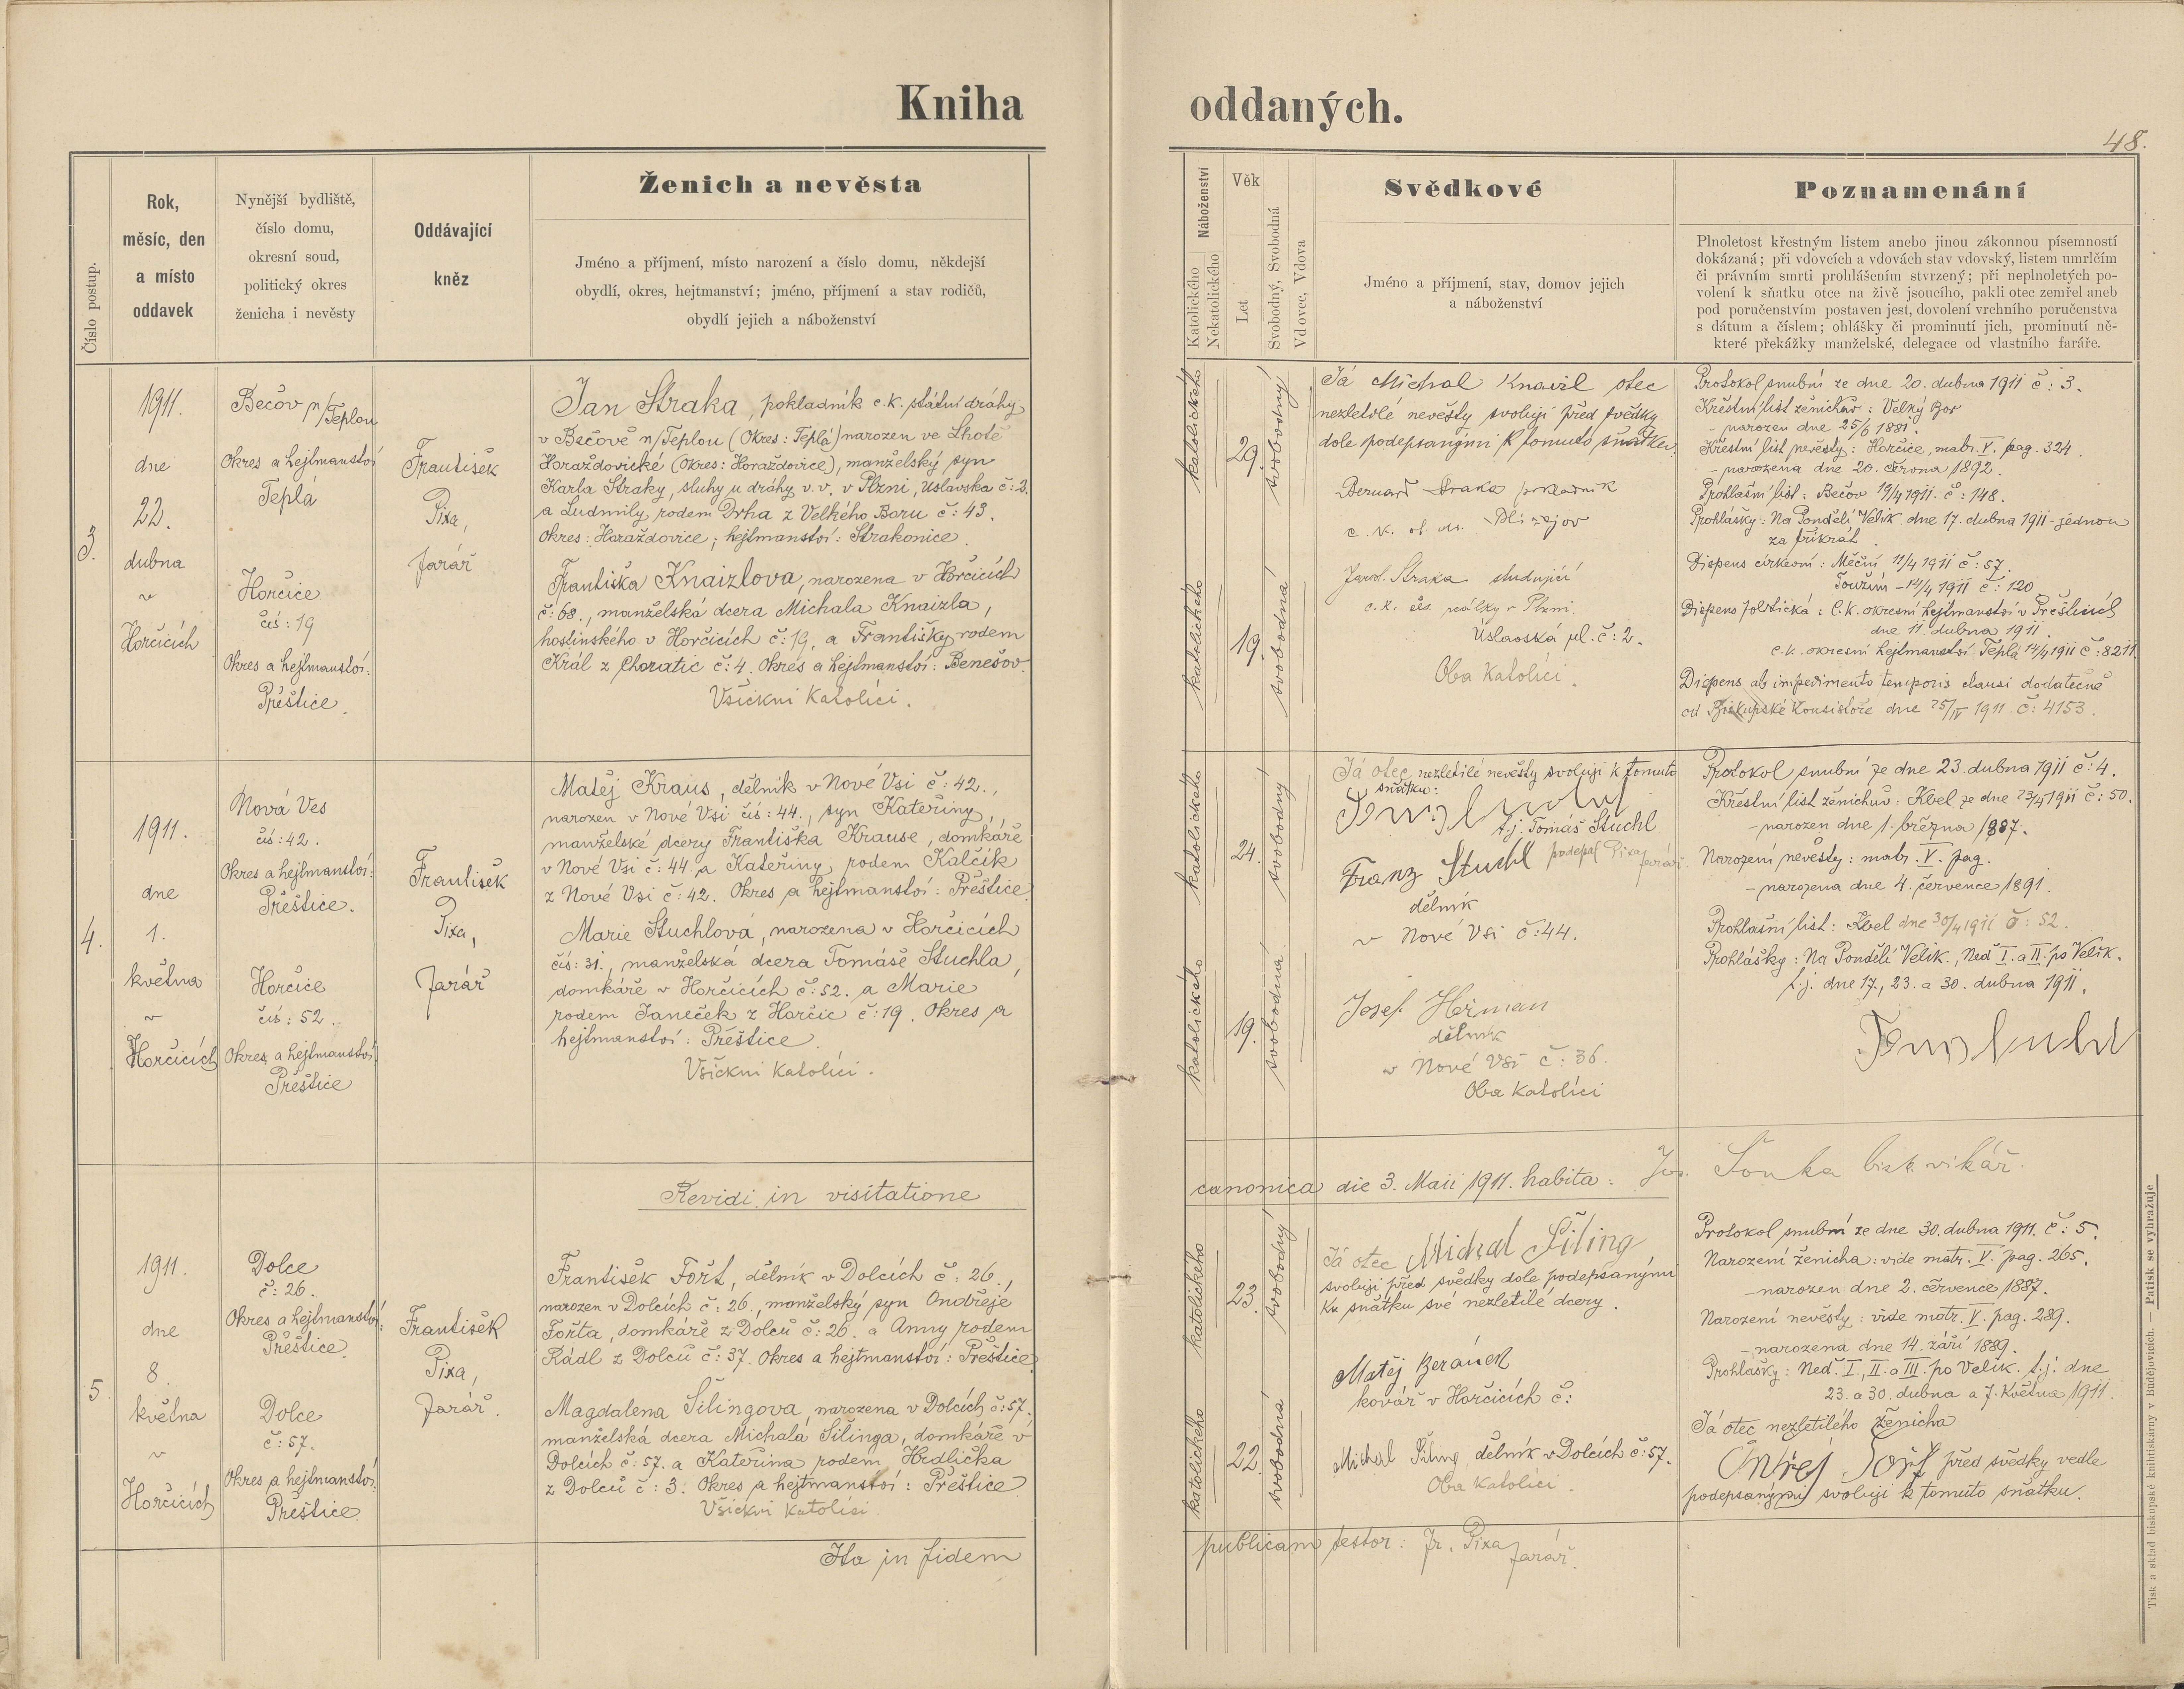 Kniha oddaných.
48.
Číslo postup.
Rok,
měsíc, den
a místo
oddavek
Nynější bydliště,
číslo domu,
okresní soud,
politický okres
ženicha i nevěsty
Oddávající
kněz
Ženich a nevěsta
Jméno a příjmení, místo narození a číslo domu, někdejší
obydlí, okres, hejtmanství; jméno, příjmení a stav rodičů,
obydlí jejich a náboženství
Náboženství
Katolického
Nekatolického
Věk
Let
Svobodný, Svobodná
Vdovec, Vdova
Svědkové
Jméno a příjmení, stav, domov jejich
a náboženství
Poznamenání
Plnoletost křestným listem anebo jinou zákonnou písemností
dokázaná; při vdovcích a vdovách stav vdovský, listem umrlčím
či právním smrti prohlášením stvrzený; při neplnoletých po-
volení k sňatku otce na živě jsoucího, pakli otec zemřel aneb
pod poručenstvím postaven jest, dovolení vrchního poručenstva
s dátum a číslem; ohlášky či prominutí jich, prominutí ně-
které překážky manželské, delegace od vlastního faráře.
3.
1911.
dne
22.
dubna
v
Horčicích
Bečov n/Teplou
Okres a hejtmanství
Teplá
Horčice
čís: 19
Okres a hejtmanství:
Přeštice.
František
Pixa,
farář
Jan Straka, pokladník c.k. státní dráhy
v Bečově n/Teplou (Okres: Teplá) narozen ve Lhotě
Horažďovické (Okres: Horažďovice), manželský syn
Karla Straky, sluhy u dráhy v.v. v Plzni, Úslavská č: 2.
a Ludmily rodem Drha z Velkého Boru č: 43.
Okres: Horažďovice; hejtmanství: Strakonice.
Františka Knaizlova, narozena v Horčicích
č: 68., manželská dcera Michala Knaizla,
hostinského v Horčicích č: 19. a Františky rodem
Král z Choratic č: 4. Okres a hejtmanství: Benešov.
Všickni Katolíci.
katolického
29.
svobodný
katolického
19.
svobodná
Já Michal Knaizl otec
nezletilé nevěsty svoluji před svědky
dole podepsanými k tomuto sňatku.
Bernard Straka pokladník
c. k. st. dr. Blízejov
Jarosl. Straka studující
c. k. čes. reálky v Plzni.
Úslavská ul. č: 2.
Oba Katolíci.
Protokol snubní ze dne 20. dubna 1911 č: 3.
Křestní list ženichův: Velký Bor
- narozen dne 25/6 1881.
Křestní list nevěsty: Horčice, matr. V. pag. 324.
- narozena dne 20. června 1892.
Prohlašní list: Bečov 19/4 1911. č: 148.
Prohlášky: Na Pondělí Velik. dne 17. dubna 1911 - jednou
za třikrát.
Dispens církevní: Měčín 11/4 1911 č: 57.
Toužim - 14/4 1911 č: 120
Dispens politická: C.k. okresní hejtmanství v Přešticích
dne 11. dubna 1911.
c.k. okresní hejtmanství Teplá 14/4 1911 č: 8211.
Dispens ab impedimento temporis clausi dodatečně
od Biskupské Konsistoře dne 25/IV 1911 č: 4153.
4.
1911.
dne
1.
května
v
Horčicích
Nová Ves
čís: 42.
Okres a hejtmanství:
Přeštice.
Horčice
čís: 52.
Okres a hejtmanství
Přeštice
František
Pixa,
farář
Matěj Kraus, dělník v Nové Vsi č: 42.,
narozen v Nové Vsi čís: 44., syn Kateřiny,
manželské dcery Františka Krause, domkáře
v Nové Vsi č: 44. a Kateřiny rodem Kalčík
z Nové Vsi č: 42. Okres a hejtmanství: Přeštice.
Marie Stuchlová, narozena v Horčicích
čís: 31., manželská dcera Tomáše Stuchla,
domkáře v Horčicích č: 52. a Marie
rodem Janeček z Horčic č: 19. Okres a
hejtmanství: Přeštice.
Všickni Katolíci.
katolického
24.
svobodný
katolického
19.
svobodná
Já otec nezletilé nevěsty svoluji k tomuto
sňatku:
t.j. Tomáš Stuchl
podepsal Pixa
farář
Franz Stuchl
dělník
v Nové Vsi č: 44.
Josef Heřman
dělník
v Nové Vsi č: 36.
Oba katolíci
Protokol snubní ze dne 23. dubna 1911 č: 4.
Křestní list ženichův: Kbel ze dne 23/4 1911 č: 50.
- narozen dne 1. března 1887.
Narození nevěsty: matr. V. pag.
- narozena dne 4. července 1891.
Prohlašní list: Kbel dne 30/4 1911 č: 52.
Prohlášky: Na Pondělí Velik., Neď I. a II. po Velik.
t.j. dne 17., 23. a 30. dubna 1911.
Revidi in visitatione
canonica die 3. Maii 1911. habita: Jos. Šonka bisk. vikář.
5.
1911.
dne
8.
května
v
Horčicích
Dolce
č: 26.
Okres a hejtmanství:
Přeštice.
Dolce
č: 57.
Okres a hejtmanství:
Přeštice.
František
Pixa,
farář.
František Fořt, dělník v Dolcích č: 26.,
narozen v Dolcích č: 26., manželský syn Ondřeje
Fořta, domkáře z Dolců č: 26. a Anny rodem
Rádl z Dolců č: 37. Okres a hejtmanství: Přeštice.
Magdalena Šilingova, narozena v Dolcích č: 57.
manželská dcera Michala Šilinga, domkáře v
Dolcích č: 57. a Kateřina rodem Hrdlička
z Dolců č: 3. Okres a hejtmanství: Přeštice
Všickni Katolíci
katolického
23.
svobodný
katolického
22.
svobodná
Já otec Michal Šiling
svoluji před svědky dole podepsanými
ku sňatku své nezletilé dcery.
Matěj Beránek
kovář v Horčicích č:
Michal Šiling dělník v Dolcích č: 57.
Oba Katolíci.
Protokol snubní ze dne 30. dubna 1911. č: 5.
Narození ženicha: vide matr. V. pag. 265.
- narozen dne 2. července 1887.
Narození nevěsty: vide matr. V. pag. 289.
- narozena dne 14. září 1889.
Prohlášky: Neď. I., II. a III. po Velik. t.j. dne
23. a 30. dubna a 7. Května 1911.
Já otec nezletilého ženicha
Ondřej Fořt před svědky vedle
podepsanými svoluji k tomuto sňatku.
Ita in fidem
publicam testor: Fr. Pixa
farář.
Tisk a sklad biskupské knihtiskárny v Budějovicích. — Patisk se vyhražuje